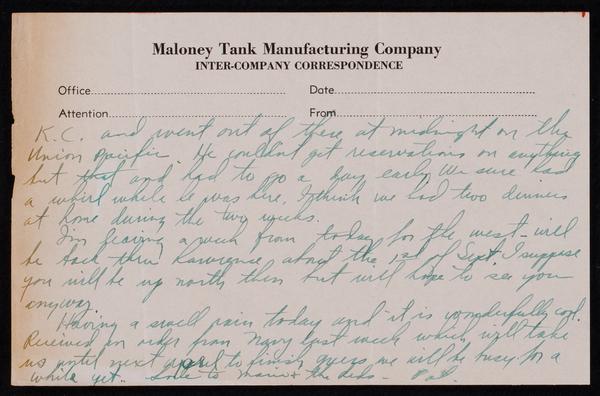 Maloney Tank Manufacturing Company
INTER-COMPANY CORRESPONDENCE
Office Date
Attention From
K.C. and went out of there at midnight on the
Union Pacific. He couldn't get reservations on anything
but that and had to go a day early. We sure had
a whirl while he was here. I think we had two dinners
at home during the two weeks.
I'm leaving a week from today for the west - will
be back thru Lawrence about the 1st of Sept. I suppose
you will be up north then but will hope to see you
anyway.
Having a swell rain today and it is wonderfully cool.
Received an order from Navy last week which will take
us until next April to finish, guess we will be busy for a
while yet. Love to Marie & the kids - Pal.